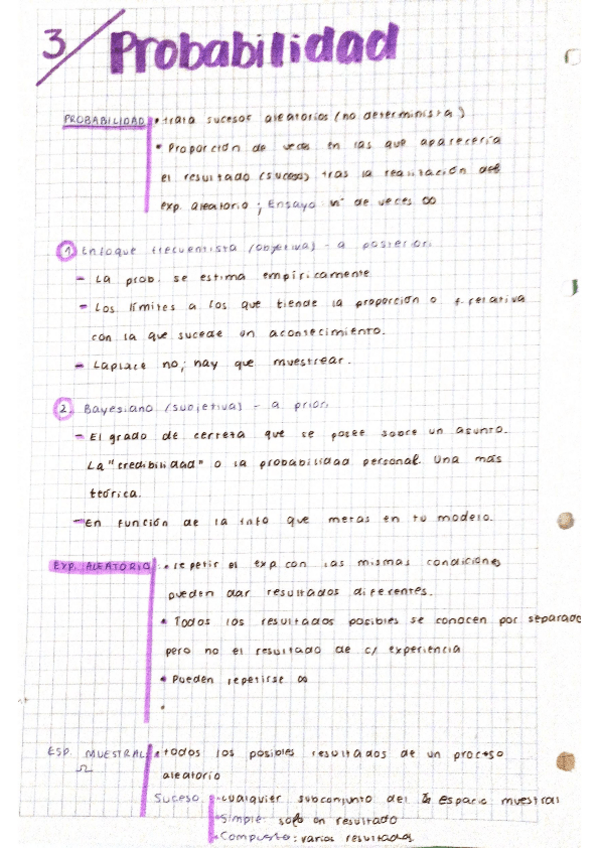 3/ Probabilidad
PROBABILIDAD • trata sucesos aleatorios (no determinista)
• Proporción de veces en las que aparecería
el resultado (suceso) tras la realitación del
exp. aleatorio ; Ensayo nº de veces ∞
1 Enfoque frecuentista (objetiva) - a posteriori
- La prob. se estima empíricamente
- Los límites a los que tiende la proporción o f. relativa
con la que sucede un acontecimiento.
- Laplace no; hay que muestrear.
2. Bayesiano (subjetiva) - a priori
- El grado de certeza que se posee sobre un asunto.
La "credibilidad" o la probabilidad personal. Una más
teórica.
- En función de la info que metas en tu modelo.
EXP. ALEATORIO: • repetir el exp con las mismas condiciones
pueden dar resultados diferentes.
• Todos los resultados posibles se conocen por separado
pero no el resultado de c/ experiencia
• Pueden repetirse ∞
•
ESP. MUESTRAL: • todos los posibles resultados de un proceso
Ω
aleatorio
Suceso • cualquier subconjunto del espacio muestral
• Simple: solo un resultado
• Compuesto: varios resultados